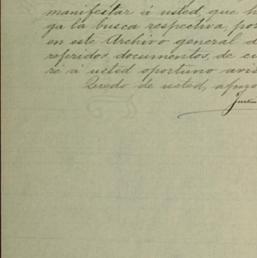 manifestar á usted, que h
ga la busca respectiva, por
en este Archivo general d
referidos documentos, de cu
ré á usted oportuno avis
Quedo de usted, afmo